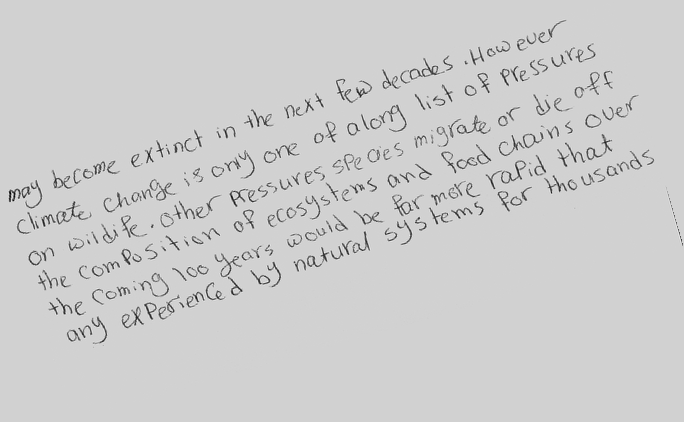 may become extinct in the next few decades. However
climate change is only one of along list of pressures
on wildife. Other pressures species migrate or die off
the composition of ecosystems and food chains over
the coming 100 years would be far more rapid that
any experienced by natural systems for thousands